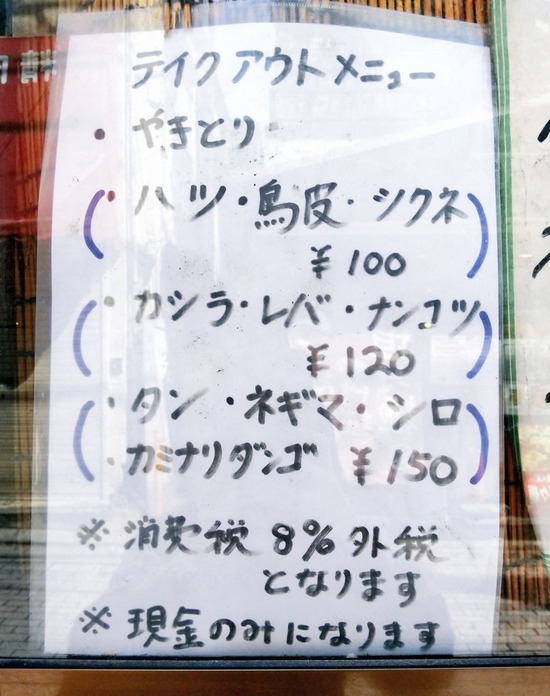 テイクアウトメニュー
・やきとり
(・ハツ・鳥皮・シクネ)
¥100
(・カシラ・レバ・ナンコツ)
¥120
(・タン・ネギマ・シロ
・カミナリダンゴ ¥150)
※消費税 8% 外税
となります
※現金のみになります